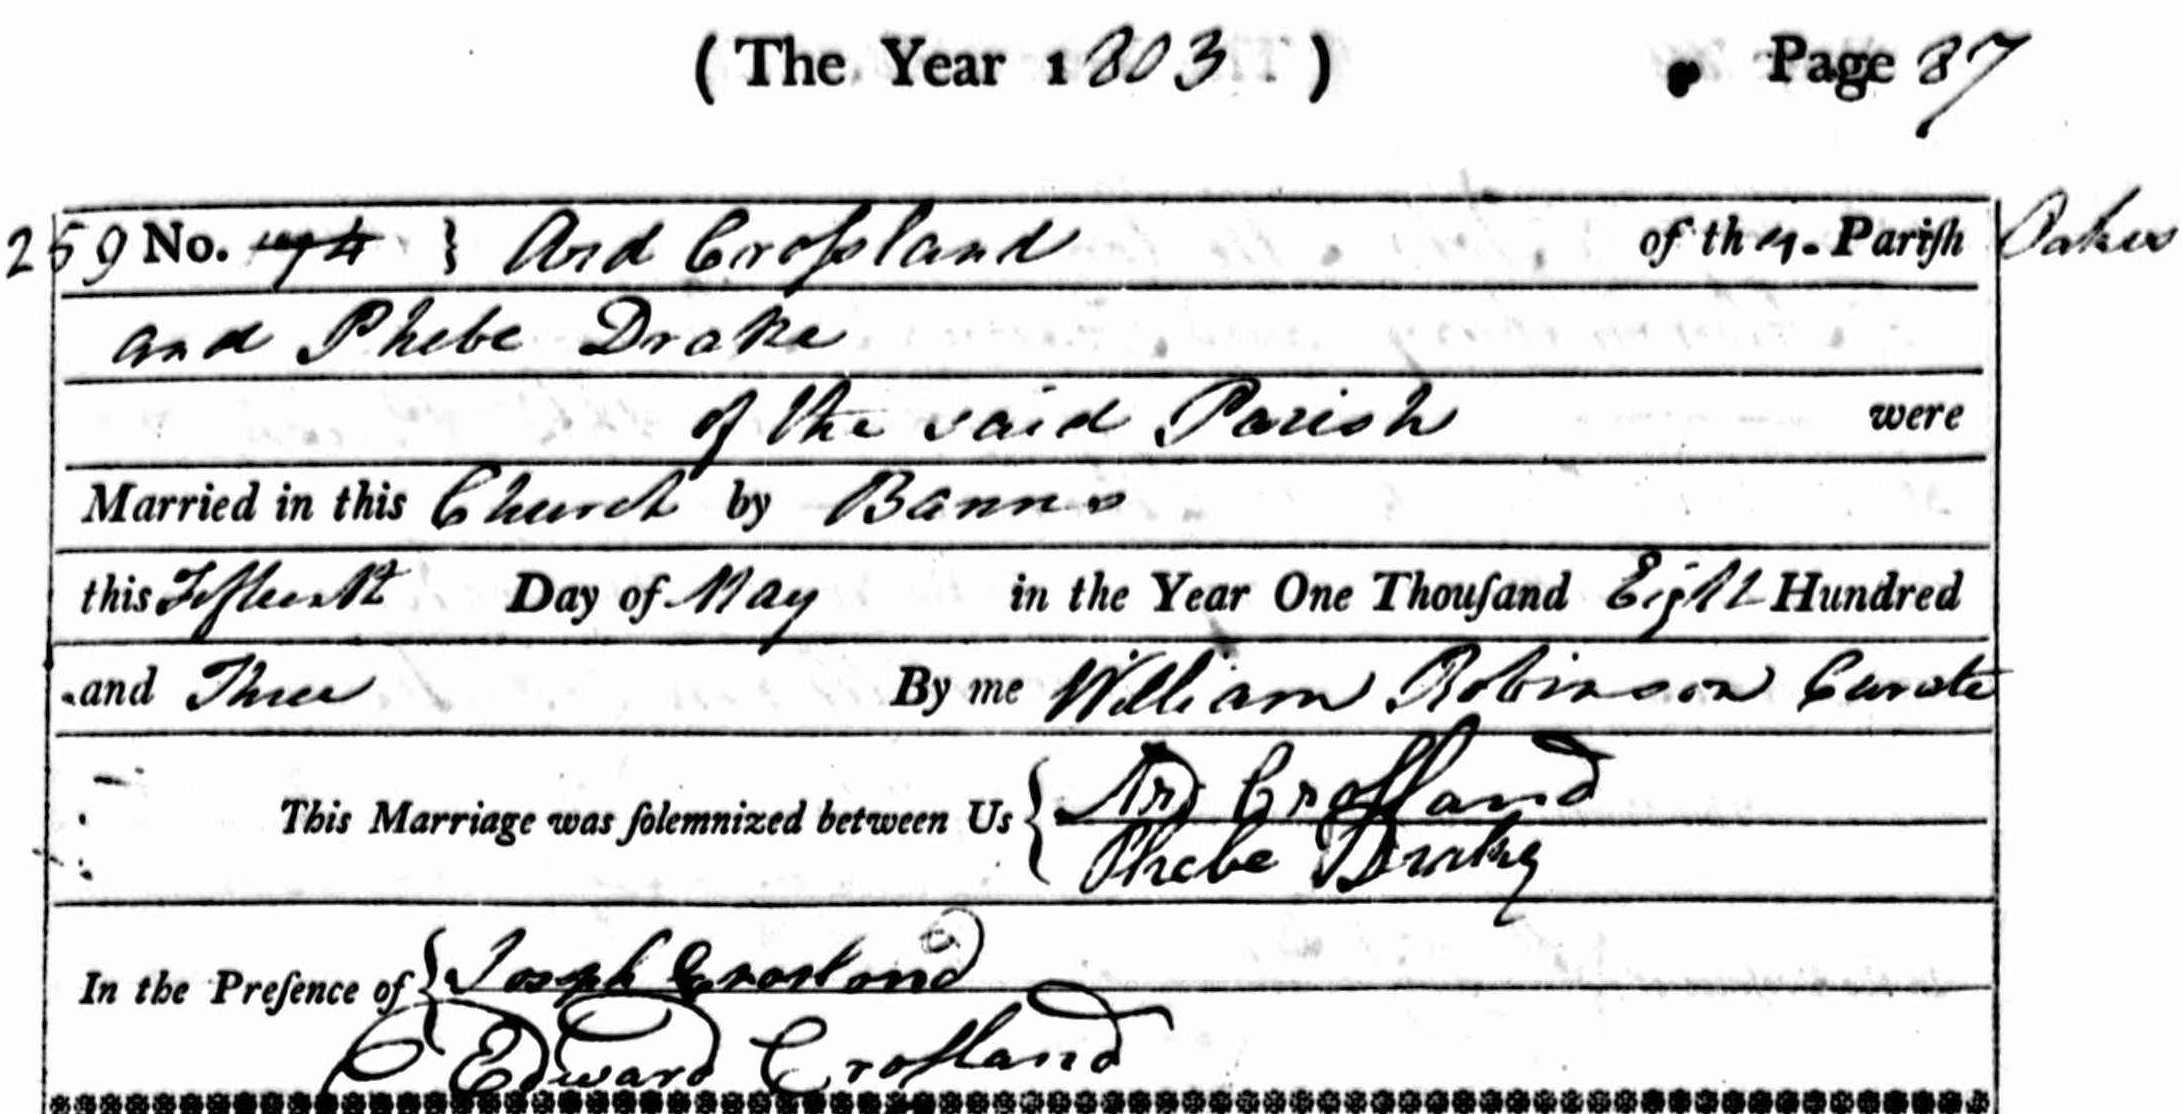 (The Year 1803) Page 87
259 No. } Ard Croſsland of this Pariſh Oakes
and Phebe Drake
of the said Parish were
Married in this Church by Banns
this Fifteenth Day of May in the Year One Thouſand Eight Hundred
and Three By me William Robinson Curate
This Marriage was ſolemnized between Us { Ard Croſsland
Phebe Drake
In the Preſence of { Joseph Crosland
Edward Croſland